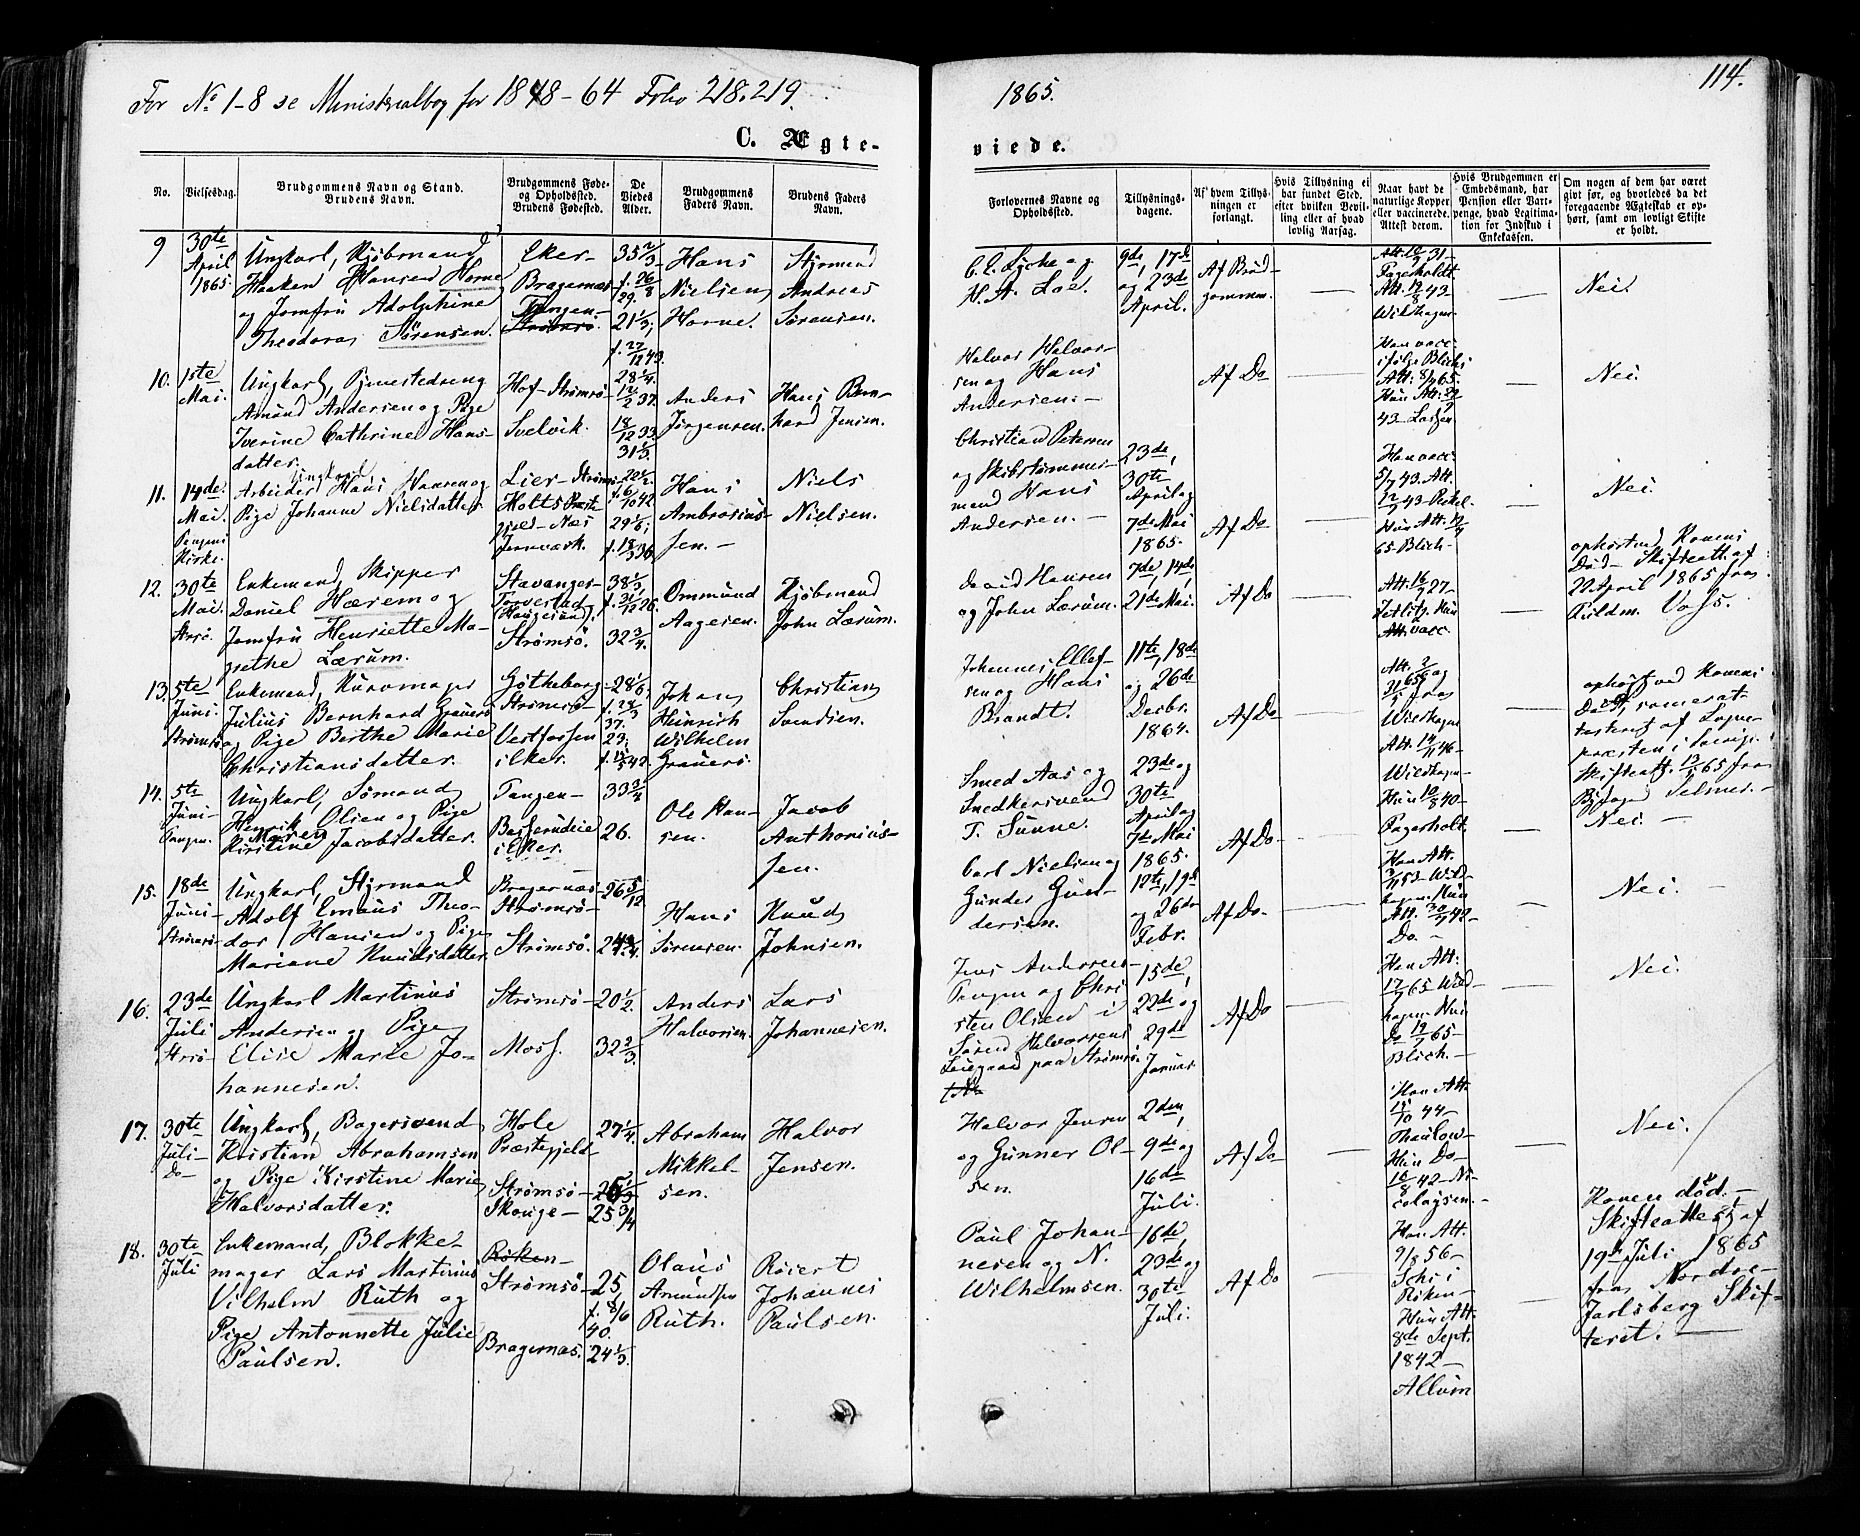 For No 1-8 se Ministerialbog for 1848-64 Folio 218.219.
1865.
114.
C. Ægte-
viede.
No.
Vielsesdag.
Brudgommens Navn og Stand.
Brudens Navn.
Brudgommens Føde-
og Opholdssted.
Brudens Fødested.
De
Viedes
Alder.
Brudgommens
Faders Navn.
Brudens Faders
Navn.
Forlovernes Navne og
Opholdssted.
Tillysnings-
dagene.
Af hvem Tillys-
ningen er
forlangt.
Hvis Tillysning ei
har fundet Sted,
efter hvilken Bevil-
ling eller af hvad
lovlig Aarsag.
Naar havt de
naturlige Kopper
eller vaccinerede.
Attest derom.
Hvis Brudgommen er
Embedsmand, har
Pension eller Vart-
penge, hvad Legitima-
tion for Indskud i
Enkekassen.
Om nogen af dem har været
givt før, og hvorledes da det
foregaaende Ægteskab er op-
hørt, samt om lovligt Skifte
er holdt.
9
30te
April
1865.
Ungkarl, Kjøbmand
Haaken Hansen Horne
og Jomfru Adolphine
Theodora Sørensen.
Eker-
Bragernæs
Tangen-
Strømsø.
35 2/3
f. 26/8
29.
21 1/3;
f. 27/12 43.
Hans
Nielsen
Horne.
Styrmand
Andreas
Sørensen.
C. E. Lyche og
H. A. Loe.
9de, 17de
og 23de
April.
Af Brud-
gommen.
Nei.
10.
1ste
Mai.
Ungkarl,
Amund Andersen og Pige
Iverine Cathrine Hans-
datter.
Hof-Strømsø-
Svelvik.
28 1/4.
12/2 37.
18/12 33
31 1/3.
Anders
Jørgensen.
Hans Bern-
hard Jensen.
Halvor Halvor-
sen og Hans
Andersen.-
Af Do
Han vacc.
ifølge Blichs
Att: 8/4 65.
Nei.
11.
14de
Mai.
Tangens
Kirke.
Ungkarl
Arbeider Hans Hansen og
Pige Johanne Nielsdatter
Lier-Strømsø
Holts Præste
gjeld-Næs
Jernværk.
29 1/6;
Hans
Ambrosius-
sen.-
Niels
Nielsen.
Christian Petersen
og Skibstømmer-
mand Hans
Andersen.-
23de,
30te
April og
7de Mai
1865.
Af Do
Han vacc:
65-Blich-
Nei.
12.
30te
Mai.
Strsø.
Enkemand, Skipper
Daniel Hærem og
Jomfru Henriette Ma-
grethe Lærum.
Stavanger-
Torvestad
Haugesund.
Strømsø.
38 1/2
32 3/4.
Ommund
Aagesen.
Kjøbmand
John Lærum.
David Hansen
og John Lærum.
7de, 14de,
21de Mai.
Af Do
ophørt ved Konens
Død-Skifteatt. af
29 April 1865 fra
Fuldm. Voss.
13.
5te
Juni.
Strømsø
Enkemand, Kurvmager
Julius Bernhard Grauers
og Pige Berthe Marie
Christiansdatter.
Gøtheborg-
Strømsø-
Vestfossen
i Eker.
28 1/6;
37.
23;
Johan
Hinrich
Wilhelm
Grauers.
Christian
Svendsen.
Johannes Ellef-
sen og Hans
Brandt.
11te, 18de
og 26de
Decbr.
1864.
Af Do
14.
5te
Juni-
Tangen.
Ungkarl, Sømand
Henrik Olsen og Pige
Maren
Kirstine Jacobsdatter.
Tangen-
i Eker.
33 3/4
26.
Ole Han-
sen.
Jacob
Anthonius-
sen.
Smed Aas og
Snedkersvend
T. Sunne.
23de og
30te
April og
7de Mai
1865.
Af Do-
Nei.-
15.
18de
Juni-
Strømsø-
Ungkarl, Styrmand
Adolf Emaus Theo-
dor Hansen og Pige
Mariane Knudsdatter.
Bragernæs-
Strømsø-
Strømsø.
26 5/12
Hans
Sørensen.
Knud
Johnsen.
Carl Nielsen og
Gunder Gun-
dersen.
12te, 19de
og 26de
Febr.
Af Do-
Nei.-
16.
23de
Juli
Strsø-
Ungkarl Martinus
Andersen og Pige
Elise Marie Jo-
hannesen.
Strømsø-
Moss.
20 1/2.
32 2/3.
Anders
Halvorsen.
Lars
Johannesen.
Jens Andersen-
Tangen og Chri
sten Olsen i
Søren Halvorsens
Leiegaard paa Strømsø.
15de,
22de og
29de
Januar
Af Do
Blich.-
Nei.
17.
30te
Juli-
Do-
Ungkarl, Bagersvend
Kristian Abrahamsen
og Pige Kirstine Marie
Halvorsdatter.
Hole
Præstegjeld-
Strømsø-
Skouge-
27 1/4.
25 3/4
Abraham
Mikkel-
sen.
Halvor
Jensen.
Halvor Jensen
og Gunner Ol-
sen.
2den,
9de og
16de
Juli.
Af Do
Han Att.
15/10 44-
Thaulow-
Hun Do-
16/8 42-Ni-
colaysen.-
Nei.
18.
30te
Juli
Enkemand, Blokke-
mager Lars Martinius
Vilhelm Ruth og
Pige Antonnette Julie
Paulsen.
Røken-
Strømsø-
Bragernæs.
25,
f. 8/6
40.
24 1/3.
Olaus
Amundsen
Ruth.
Reiert
Johannes
Paulsen.
Paul Johan-
nesen og N.
Wilhelmsen.
16de,
23de og
30te
Juli.
Af Do
Han Att.
9/8 56-
i
Røken-
Hun Att.
8de Sept.
1842-
Allum
Konen død.-
Skifteattest af
19de Juli 1865
fra Nordre-
Jarlsberg Skif-
teret.-